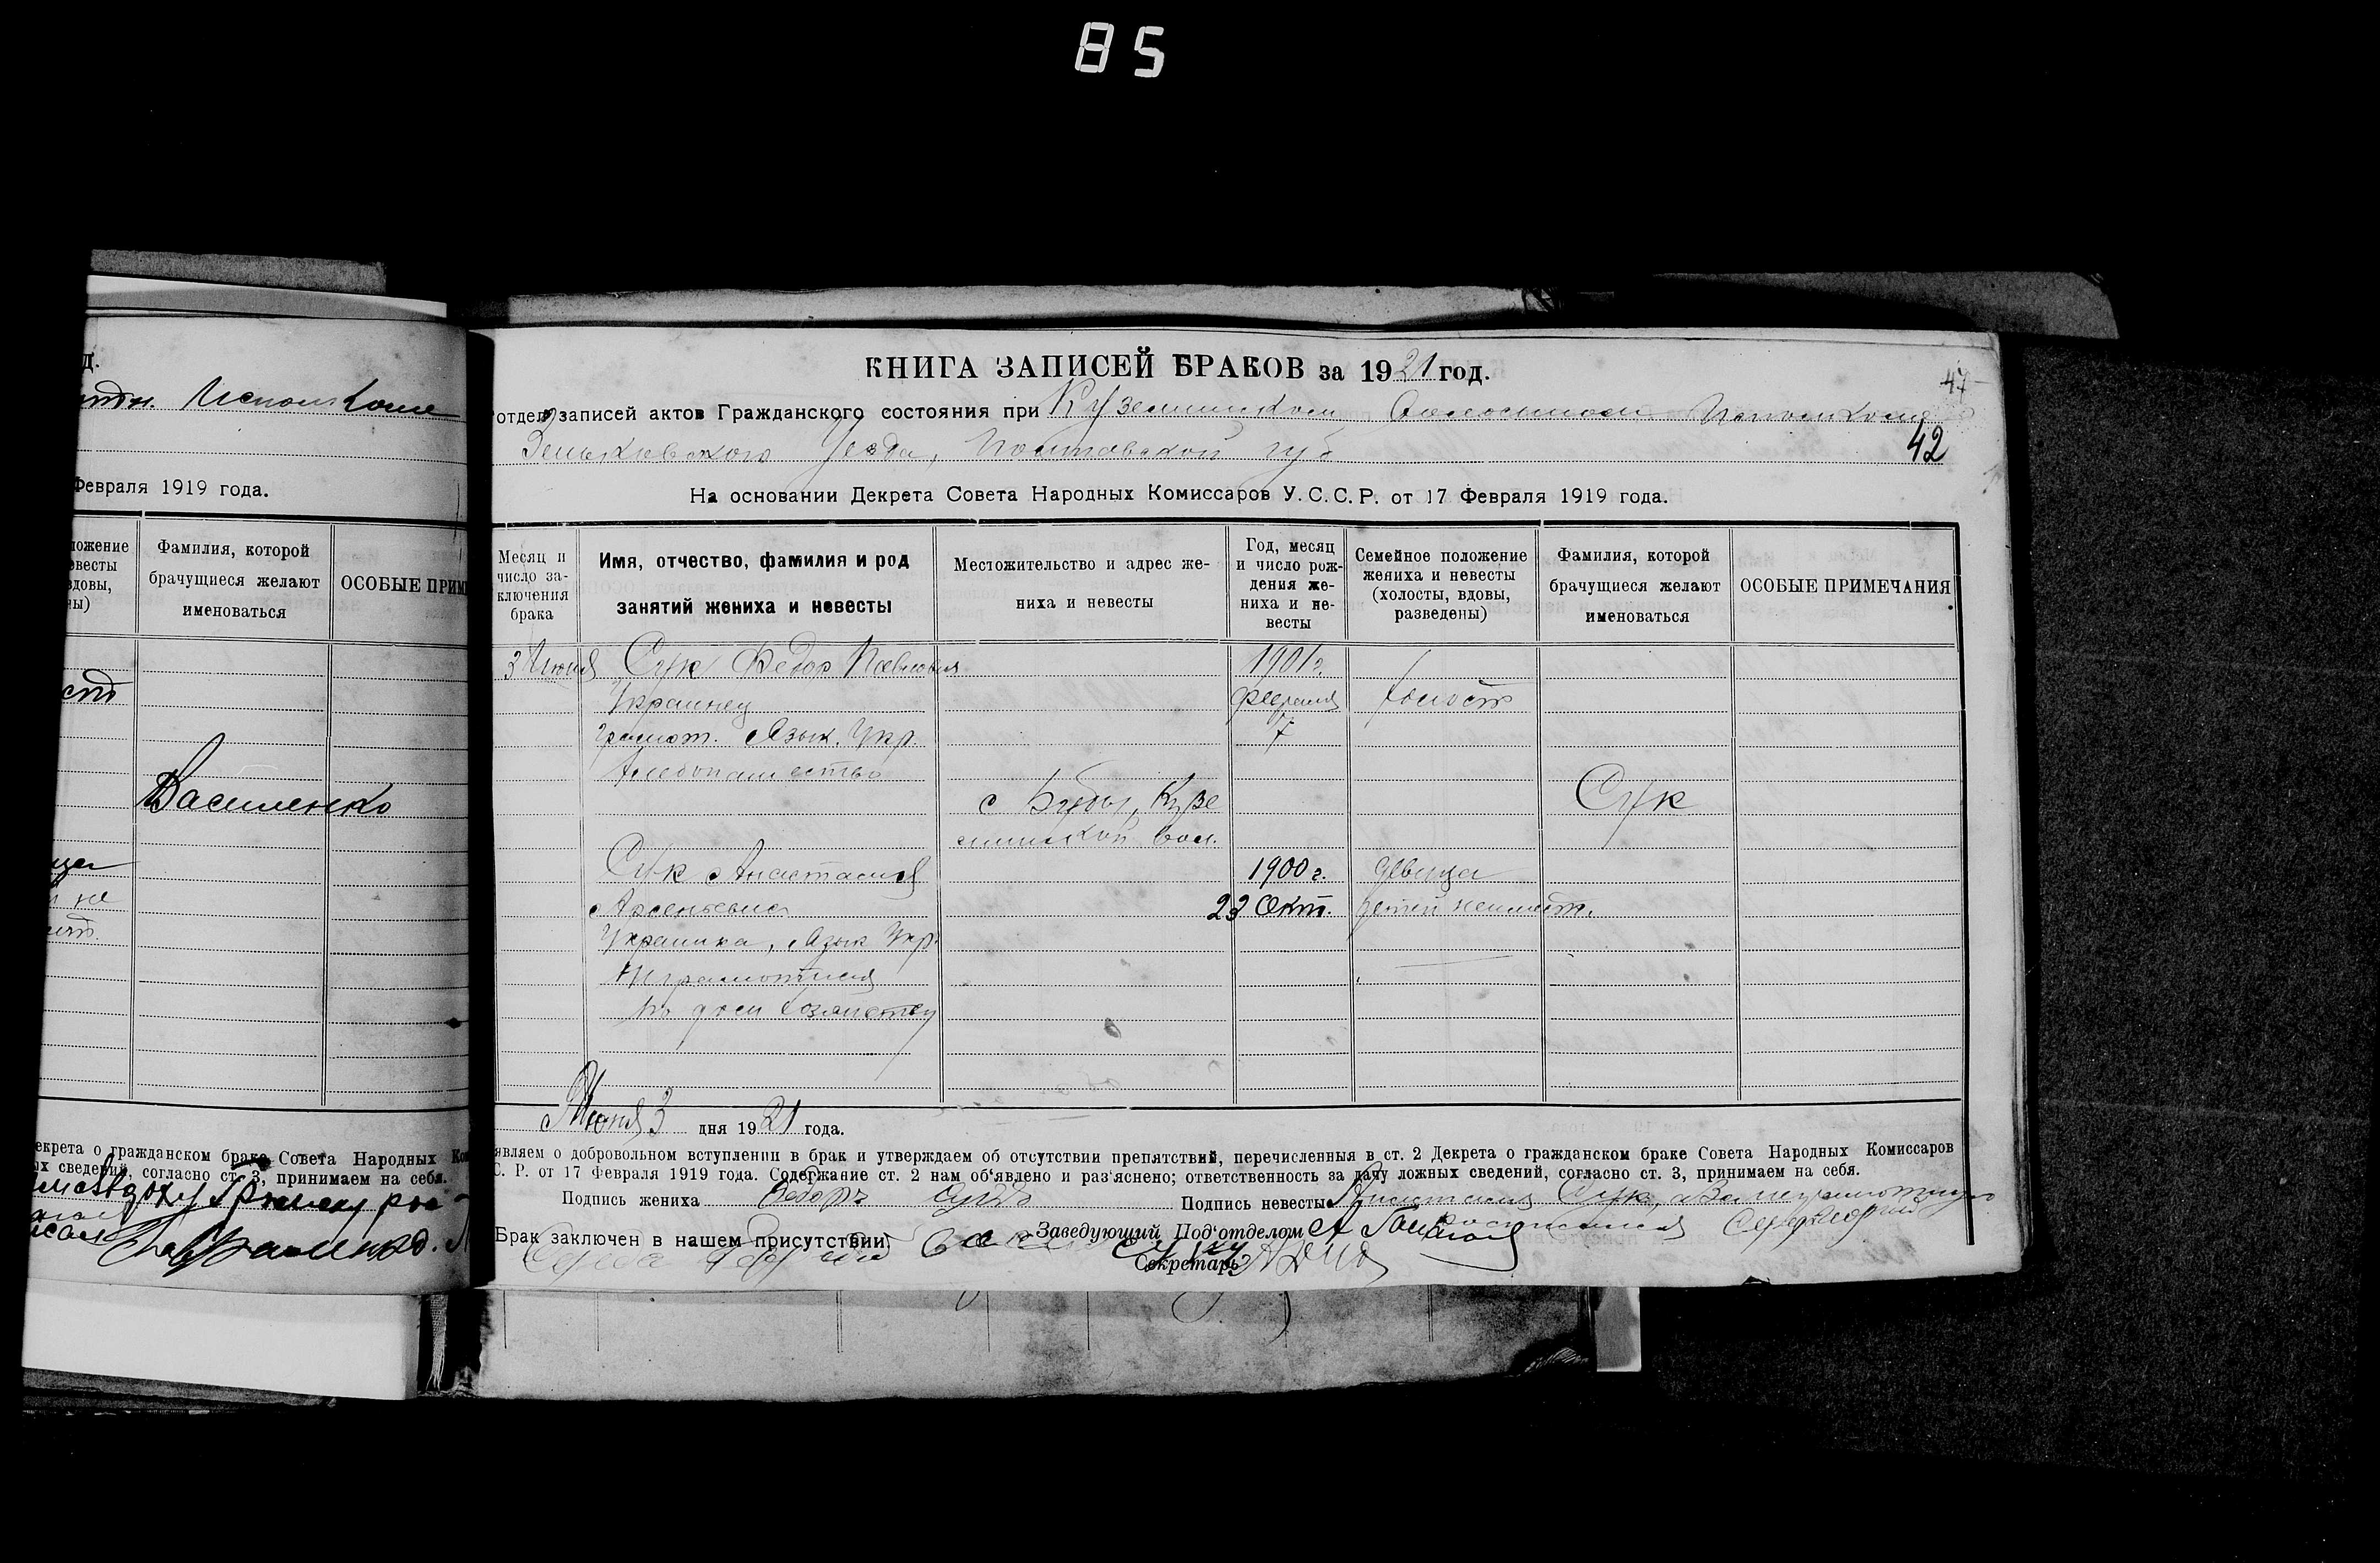 85
д.
Исполкоме
Февраля 1919 года.
ложение
евесты
вдовы,
ны)
Фамилия, которой
брачущиеся желают
именоваться
ОСОБЫЕ ПРИМ
Василенко
екрета о гражданском браке Совета Народных Ко
ых сведений, согласно ст. 3, принимаем на себя.
КНИГА ЗАПИСЕЙ БРАКОВ за 1921 год.
47
отдел записей актов Гражданского состояния при Куземинском Волостном Исполкоме
Зеньковского Уезда, Полтавской губ
42
На основании Декрета Совета Народных Комиссаров У.С.С.Р. от 17 Февраля 1919 года.
Месяц и
число за-
ключения
брака
Имя, отчество, фамилия и род
занятий жениха и невесты
Местожительство и адрес же-
ниха и невесты
Год, месяц
и число рож-
дения же-
ниха и не-
весты
Семейное положение
жениха и невесты
(холосты, вдовы,
разведены)
Фамилия, которой
брачущиеся желают
именоваться
ОСОБЫЕ ПРИМЕЧАНИЯ
3 Июня Сук Федор Павлович 1901 г.
Украинец Февраля холост
Грамот. Язык. Укр. 7
Хлебопашество
с Бубны, Кузе Сук
минской вол.
Сук Анастасия 1900 г. девица
Арсеньевна 23 Окт. детей неимеет.
Украинка, Язык Укр.
Неграмотная
по дом хозяйству
Июня 3 дня 1921 года.
являем о добровольном вступлении в брак и утверждаем об отсутствии препятствий, перечисленныя в ст. 2 Декрета о гражданском браке Совета Народных Комиссаров
С. Р. от 17 Февраля 1919 года. Содержание ст. 2 нам об'явлено и раз'яснено; ответственность за дачу ложных сведений, согласно ст. 3, принимаем на себя.
Подпись жениха Федоръ Сукъ Подпись невесты Анастасия Сук, а за неграмотную
росписался
Брак заключен в нашем присутствии
Заведующий Под'отделом
Секретарь